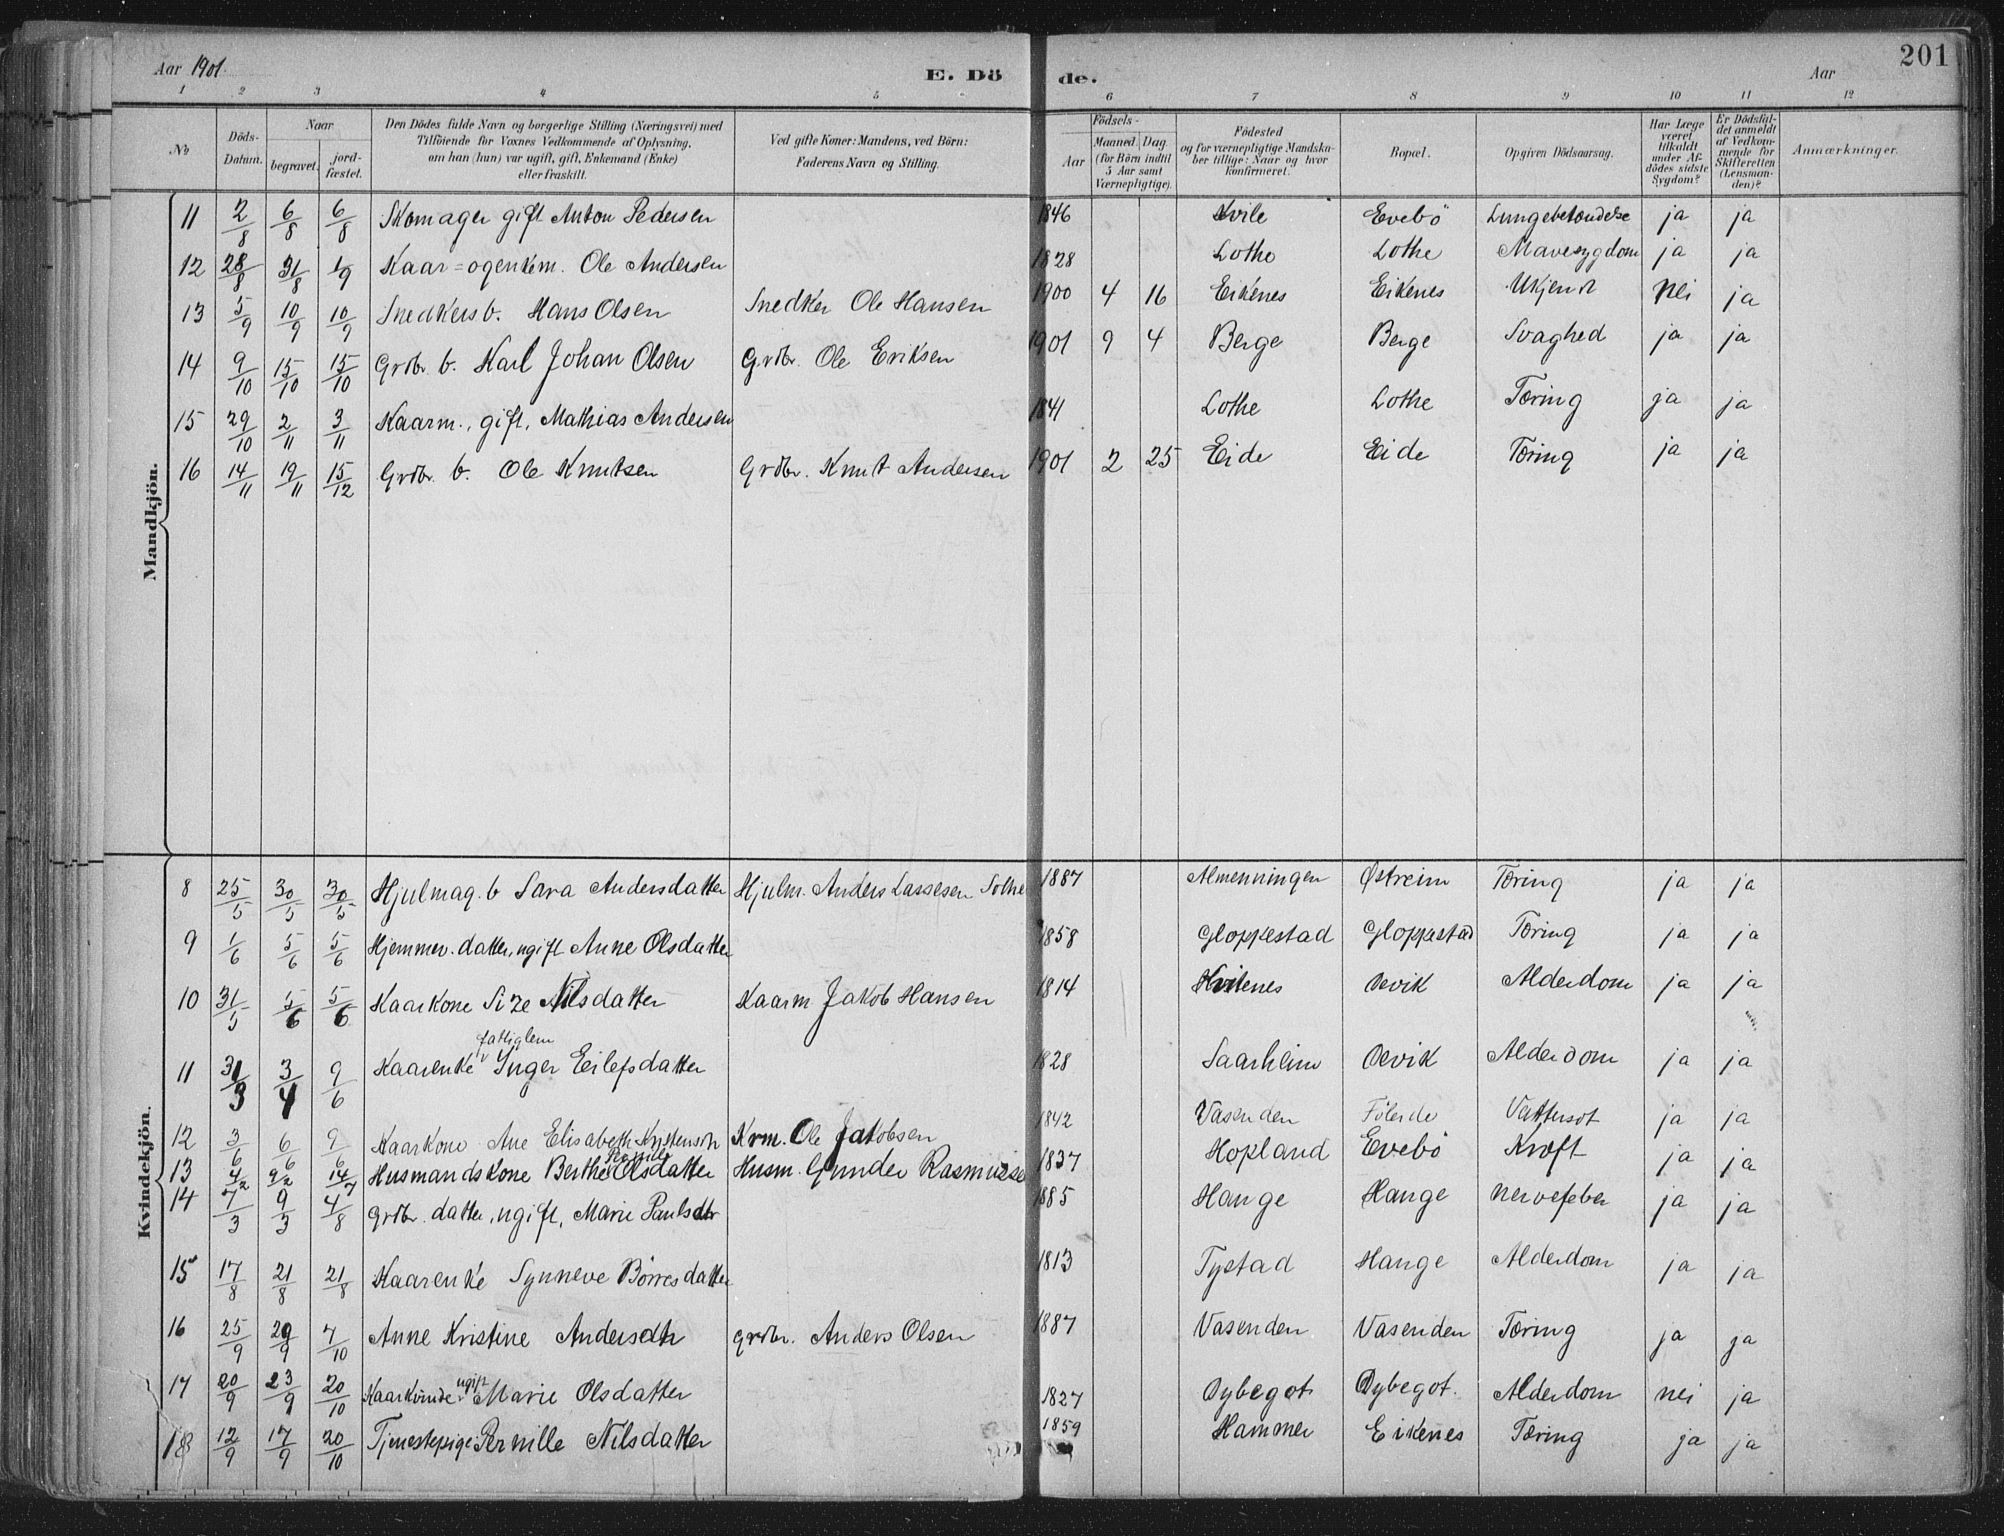 Aar 1901. E. Dö de. Aar 201
1 2 3 4 5 6 7 8 9 10 11 12
No Döds-Datum. Naar begravet. jord-fæstet.
Den Dödes fulde Navn og borgerlige Stilling (Næringsvei) med
Tilföiende for Voxnes Vedkommende af Oplysning,
om han (hun) var ugift, gift, Enkemand (Enke)
eller fraskilt.
Ved gifte Koner: Mandens, ved Börn:
Faderens Navn og Stilling.
Födsels-
Aar Maaned Dag
(for Börn indtil
5 Aar samt
Værnepligtige).
Födested
og for værnepligtige Mandska-
ber tillige: Naar og hvor
konfirmeret.
Bopæl.
Opgiven Dödsaarsag.
Har Læge
været
tilkaldt
under Af-
dödes sidste
Sygdom?
Er Dödsfal-
det anmeldt
af Vedkom-
mende for
Skifteretten
(Lensman-
den)?
Anmærkninger.
Mandkjön.
11 2/8 6/8 6/8 Skomager gift Anton Pedersen 1846 Kvile Evebö Lungebetændelse ja ja
12 28/8 31/8 1/9 Kaar= og enkem. Ole Andersen 1828 Lothe Lothe Mavesygdom ja ja
13 5/9 10/9 10/9 Snedkers b. Hans Olsen Snedker Ole Hansen 1900 4 16 Eikenes Eikenes Ukjendt nei ja
14 9/10 15/10 15/10 Grdbr. b. Karl Johan Olsen Grdbr. Ole Eriksen 1901 9 4 Berge Berge Svaghed ja ja
15 29/10 2/11 3/11 Kaarm., gift, Mathias Andersen 1841 Lothe Lothe Tæring ja ja
16 14/11 19/11 15/12 Grdbr. b. Ole Knutsen Grdbr. Knut Andersen 1901 2 25 Eide Eide Tæring ja ja
Kvindekjön.
8 25/5 30/5 30/5 Hjulmag. b Sara Andersdatter Hjulm. Anders Lassesen Sothe 1887 Almenningen Østreim Tæring ja ja
9 1/6 5/6 5/6 Hjemmev. datter, ugift Anne Olsdatter 1858 Gloppestad Gloppestad Tæring ja ja
10 31/5 5/6 5/6 Kaarkone Size Nilsdatter Kaarm Jakob Hansen 1814 Kvitenes Devik Alderdom ja ja
fattiglem
11 31/3 3/4 9/6 Kaarenke Inger Eilefsdatter 1828 Saarheim Devik Alderdom ja ja
12 3/6 6/6 9/6 Kaarkone Ane Elisabeth Krm. Ole Jakobsen 1842 Vasenden Følende Vattersot ja ja
13 4/2 9/2 14/7 Husmandskone Berthe Olsdatter Husm. Gunder Rasmussen 1837 Hopland Evebö Kræft ja ja
14 7/3 9/3 4/8 Grdbr. datter, ugift, Marie Paulsdtr 1885 Hauge Hauge nervefeber ja ja
15 17/8 21/8 21/8 Kaarenke Synneve Børresdatter 1813 Tystad Hauge Alderdom ja ja
16 25/9 29/9 7/10 Anne Kristine Andersdtr Grdbr. Anders Olsen 1887 Vasenden Vasenden Tæring ja ja
17 20/9 23/9 20/10 Kaarkvinde ugift Marie Olsdatter 1827 Dybegot Dybegot. Alderdom nei ja
18 12/9 17/9 20/10 Tjenestepige Pernille Nilsdatter 1859 Hammer Eikenes Tæring ja ja